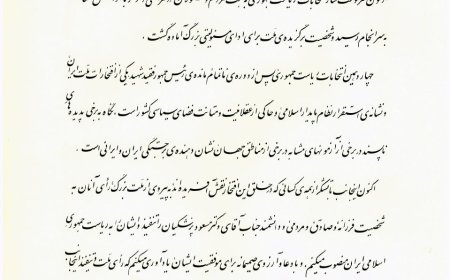 به سرانجام رسید و شخصیت برگزیده‌ی ملت برای ادای مسئولیتی بزرگ آماده گشت.
چهاردهمین انتخابات ریاست جمهوری پس از دوره‌ی ناتمام مانده‌ی رئیس جمهور فقید شهید، یکی از افتخارات ملت ایران
و نشانه‌ی استقرار نظام پایدار اسلامی و حاکی از عقلانیت و متانت فضای سیاسی کشور است. نگاه به برخی پدیده‌های
ناپسند در برخی از آزمونهای مشابه در برخی از مناطق جهان نشان دهنده‌ی برجستگی ایران و ایرانی است.
اکنون اینجانب با تشکر از همه‌ی کسانی که در خلق این افتخار نقش آفریده‌اند به پیروی از ملت بزرگ، رأی آنان به
شخصیت فرزانه و صادق و مردمی و دانشمند جناب آقای دکتر مسعود پزشکیان را تنفیذ و ایشان را به ریاست جمهوری
اسلامی ایران منصوب میکنم، و با دعا و آرزوی صمیمانه برای موفقیت ایشان یادآوری میکنم که رأی ملت و تنفیذ اینجانب